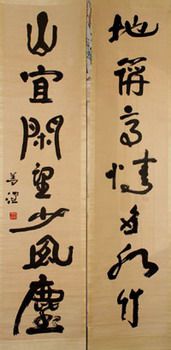 地僻高情多水竹
山宜閑望少風塵